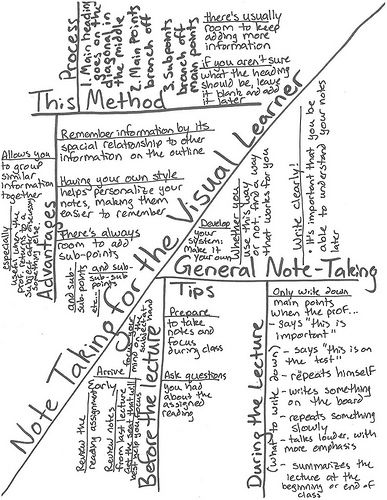 Note Taking for the Visual Learner
This Method
Process
1. Main heading
goes on the
diagonal in
the middle
2. Main Points
branch off
3. Subpoints
branch off
main points
there's usually
room to keep
adding more
information
if you aren't sure
what the heading
should be, leave
it blank and add
it later
Advantages
Remember information by its
spacial relationship to other
information on the outline
Having your own style
helps personalize your
notes, making them
easier to remember
There's always
room to add
sub-points
and sub-
sub-points
and sub-
sub-sub-
points
etc...
Allows you
to group
similar
information
together
especially
useful when the
prof returns to a
subject after discussing
something else.
General Note-Taking
Tips
Develop
your
system:
make it
your own
Whether you
use this way
or not, find a way
that works for you
Write clearly!
• It's important that you be
able to understand your notes
later
Before the lecture
Prepare
to take
notes and
focus
during class
Ask questions
you had
about the
assigned
reading
Arrive
Early
focus your
mind on the
subject at
hand
Get the seat that will
best help you focus
Review notes
from last lecture
Review the
reading assignment
During the Lecture
(what to write down)
Only write down
main points
when the prof...
- says "this is
important"
- says "this is on
the test"
- repeats himself
- writes something
on the board
- repeats something
slowly
- talks louder, with
more emphasis
- summarizes the
lecture at the
beginning or end of
class